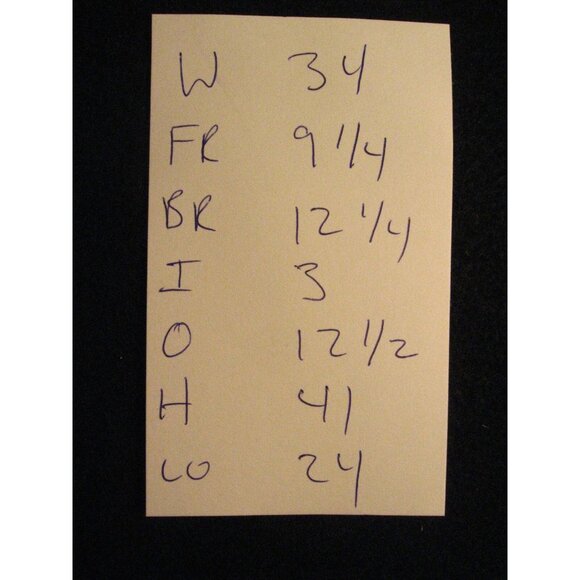 W 34
FR 9 1/4
BR 12 1/4
I 3
O 12 1/2
H 41
LO 24